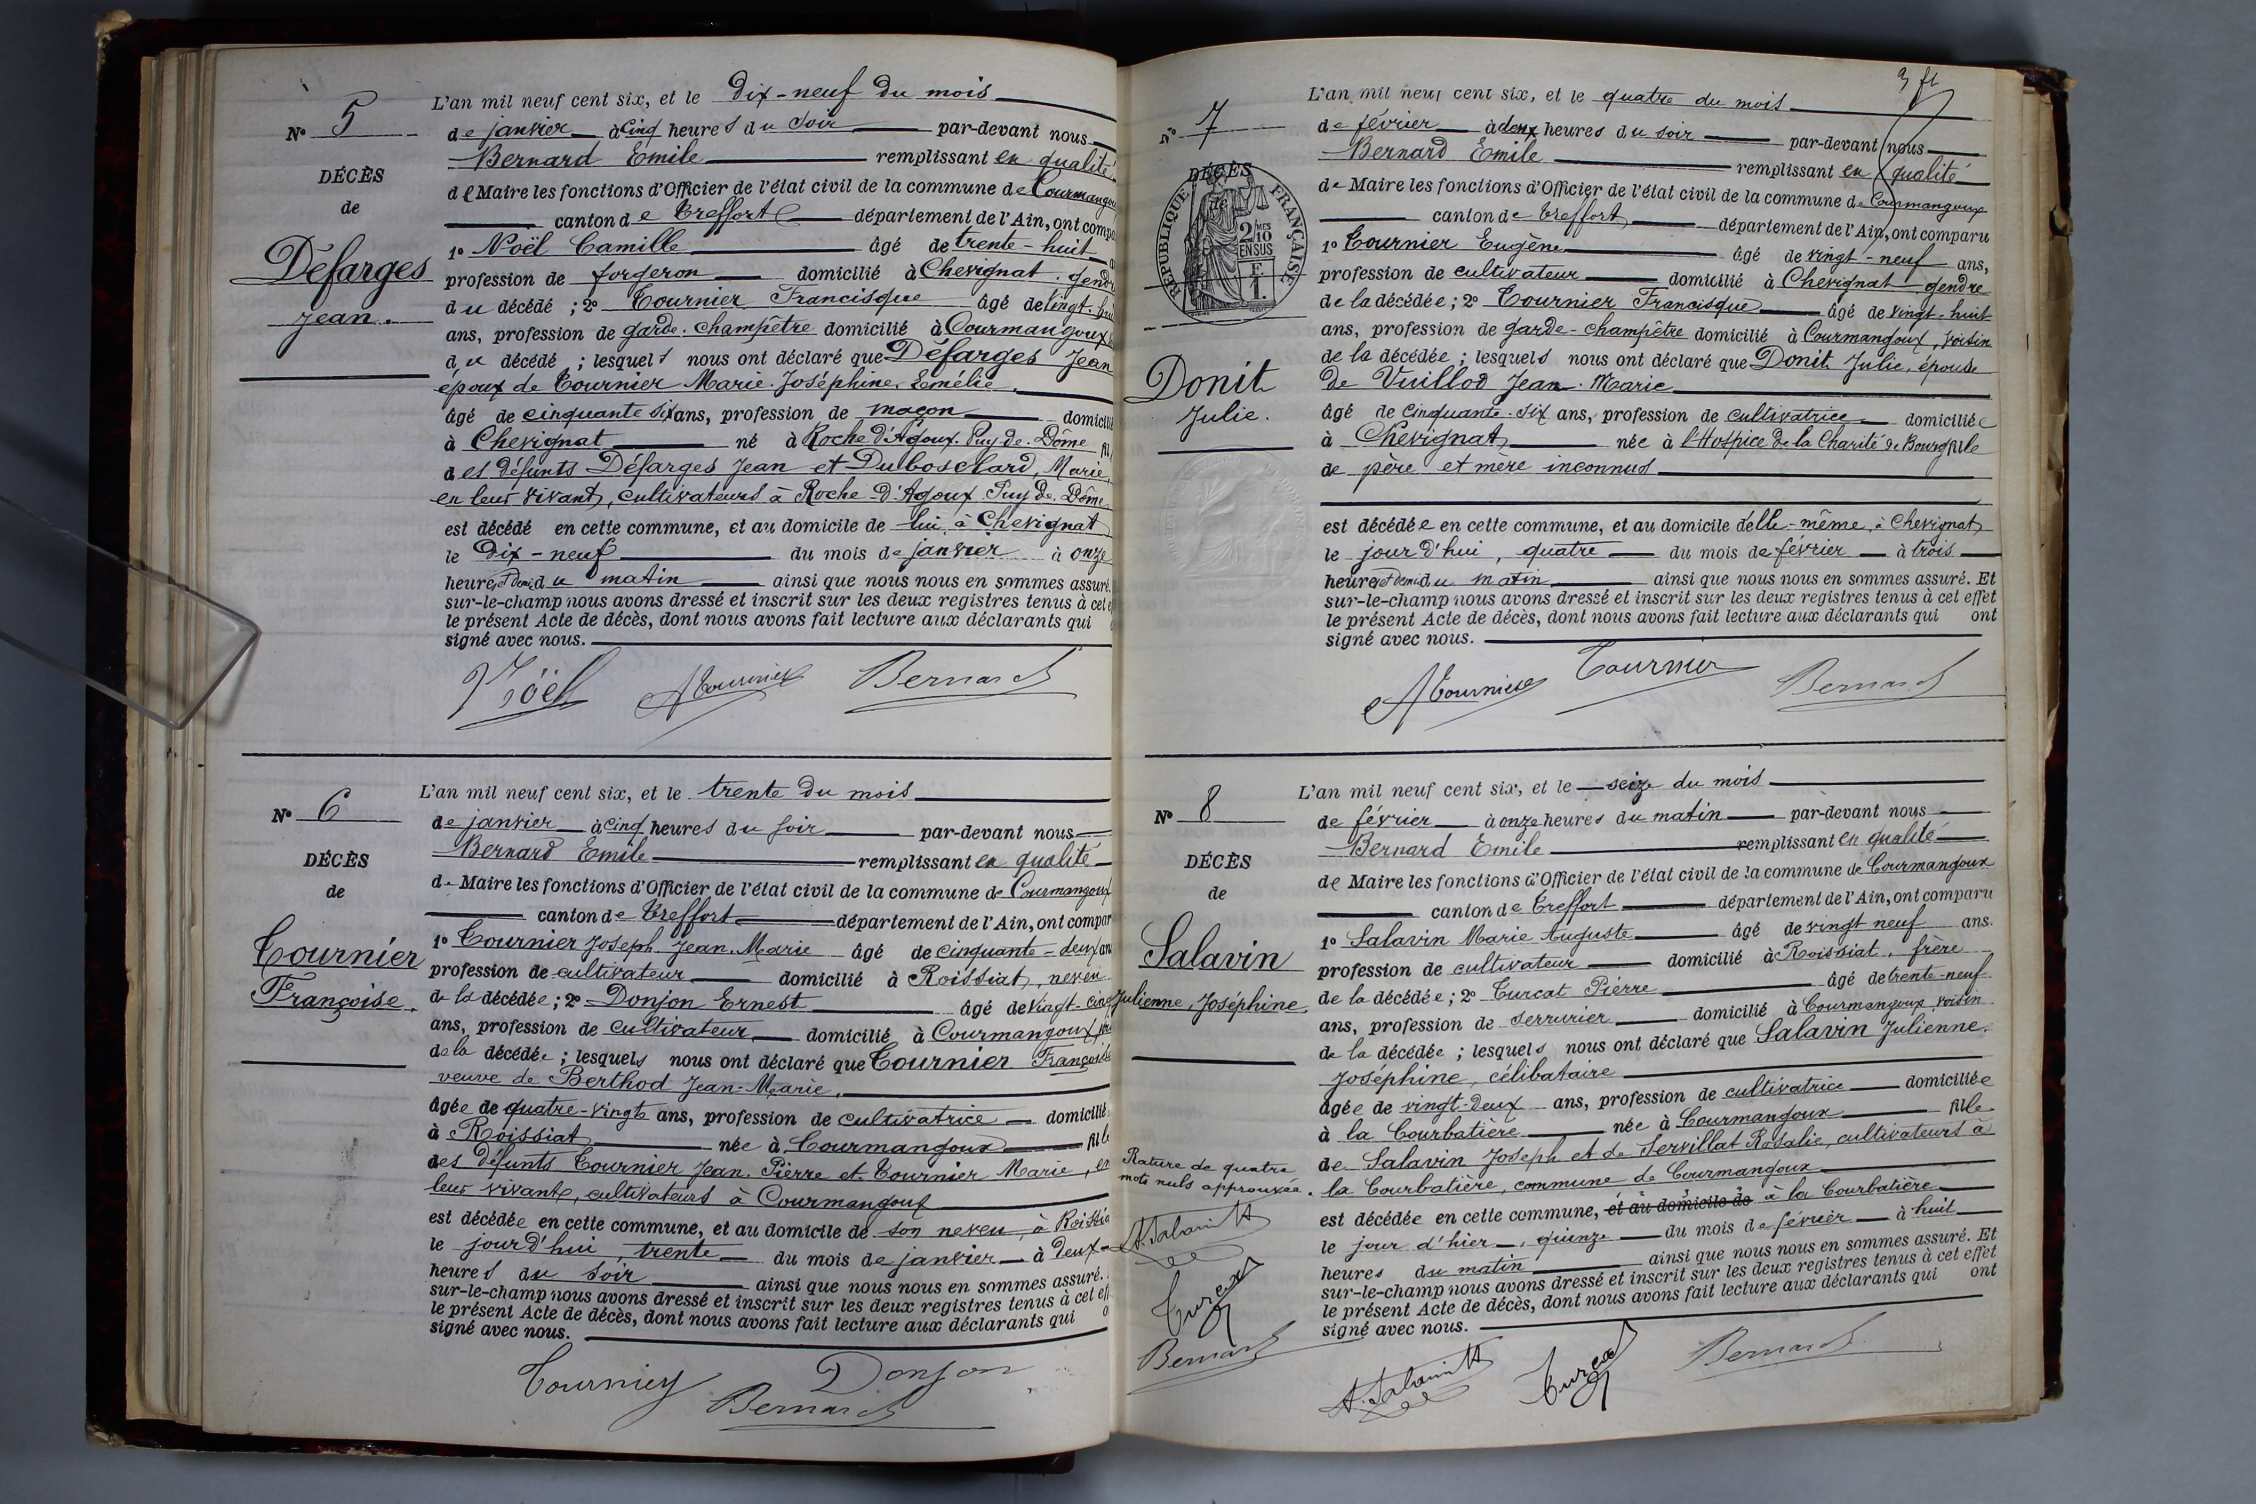 L'an mil neuf cent six, et le dix-neuf du mois
N° 5
de janvier à cinq heures du soir par-devant nous
Bernard Emile remplissant en qualité
DÉCÈS
de Maire les fonctions d'Officier de l'état civil de la commune de Courmangou
de
canton de Treffort département de l'Ain, ont compa
1° Noël Camille âgé de trente-huit
Défarges
profession de forgeron domicilié à Chevignat. gendr
du décédé ; 2° Tournier Francisque âgé de vingt-hui
Jean.
ans, profession de garde-champêtre domicilié à Courmangoux
du décédé ; lesquels nous ont déclaré que Défarges Jean
époux de Tournier Marie-Joséphine Emélie
âgé de cinquante six ans, profession de maçon domicilié
à Chevignat né à Roche d'Agoux. Puy-de-Dôme fil
des défunts Défarges Jean et Dubosclard, Marie,
en leur vivant, cultivateurs à Roche-d'Agoux. Puy-de-Dôme
est décédé en cette commune, et au domicile de lui, à Chevignat
le dix-neuf du mois de janvier à onze
heures et demi du matin ainsi que nous nous en sommes assuré.
sur-le-champ nous avons dressé et inscrit sur les deux registres tenus à cet e
le présent Acte de décès, dont nous avons fait lecture aux déclarants qui
signé avec nous.
Noël Tournier Bernard
L'an mil neuf cent six, et le trente du mois
N° 6
de janvier à cinq heures du soir par-devant nous
Bernard Emile remplissant en qualité
DÉCÈS
de Maire les fonctions d'Officier de l'état civil de la commune de Courmangoux
de
canton de Treffort département de l'Ain, ont compar
1° Tournier Joseph Jean-Marie âgé de cinquante-deux an
Tournier
profession de cultivateur domicilié à Roissiat, neveu
Françoise.
de la décédée ; 2° Donjon Ernest âgé de vingt-cinq
ans, profession de cultivateur domicilié à Courmangoux,
de la décédée ; lesquels nous ont déclaré que Tournier Françoise
veuve de Berthod Jean-Marie,
âgée de quatre-vingts ans, profession de cultivatrice domicilié
à Roissiat née à Courmangoux fille
des défunts Tournier Jean-Pierre et Tournier Marie, en
leur vivant, cultivateurs à Courmangoux
est décédée en cette commune, et au domicile de son neveu, à Roissia
le jourd'hui, trente du mois de janvier à deux
heures du soir ainsi que nous nous en sommes assuré.
sur-le-champ nous avons dressé et inscrit sur les deux registres tenus à cet eff
le présent Acte de décès, dont nous avons fait lecture aux déclarants qui o
signé avec nous.
Tournier Donjon
Bernard
L'an mil neuf cent six, et le quatre du mois
N° 7
de février à deux heures du soir par-devant nous
Bernard Emile remplissant en qualité
DÉCÈS
de
RÉPUBLIQUE FRANÇAISE
2 MES 10 EN SUS
F 1.
de Maire les fonctions d'Officier de l'état civil de la commune de Courmangoux
canton de Treffort département de l'Ain, ont comparu
1° Tournier Eugène âgé de vingt-neuf ans,
profession de cultivateur domicilié à Chevignat gendre
de la décédée ; 2° Tournier Francisque âgé de vingt-huit
ans, profession de garde-champêtre domicilié à Courmangoux, voisin
de la décédée ; lesquels nous ont déclaré que Donit Julie, épouse
Donit
de Vuillod Jean-Marie
Julie.
âgé de cinquante-six ans, profession de cultivatrice domiciliée
à Chevignat née à l'Hospice de la Charité de Bourg fille
de père et mère inconnus
est décédée en cette commune, et au domicile d'elle-même, à Chevignat
le jour d'hui, quatre du mois de février à trois
heures et demi du matin ainsi que nous nous en sommes assuré. Et
sur-le-champ nous avons dressé et inscrit sur les deux registres tenus à cet effet
le présent Acte de décès, dont nous avons fait lecture aux déclarants qui ont
signé avec nous.
Tournier Tournier Bernard
L'an mil neuf cent six, et le seize du mois
N° 8
de février à onze heures du matin par-devant nous
Bernard Emile remplissant en qualité
DÉCÈS
de Maire les fonctions d'Officier de l'état civil de la commune de Courmangoux
de
canton de Treffort département de l'Ain, ont comparu
1° Salavin Marie Auguste âgé de vingt neuf ans.
Salavin
profession de cultivateur domicilié à Roissiat, frère
Julienne, Joséphine.
de la décédée ; 2° Turcat Pierre âgé de trente-neuf
ans, profession de serrurier domicilié à Courmangoux, voisin
de la décédée ; lesquels nous ont déclaré que Salavin Julienne,
Joséphine, célibataire
âgée de vingt-deux ans, profession de cultivatrice domiciliée
à la Courbatière née à Courmangoux fille
de Salavin Joseph et de Servillat Rosalie, cultivateurs à
la Courbatière, commune de Courmangoux
Rature de quatre
mots nuls approuvée.
est décédée en cette commune, et au domicile de à la Courbatière
le jour d'hier, quinze du mois de février à huit
heures du matin ainsi que nous nous en sommes assuré. Et
sur-le-champ nous avons dressé et inscrit sur les deux registres tenus à cet effet
le présent Acte de décès, dont nous avons fait lecture aux déclarants qui ont
signé avec nous.
A. Salavin
Turcat
Bernard
A. Salavin Turcat Bernard